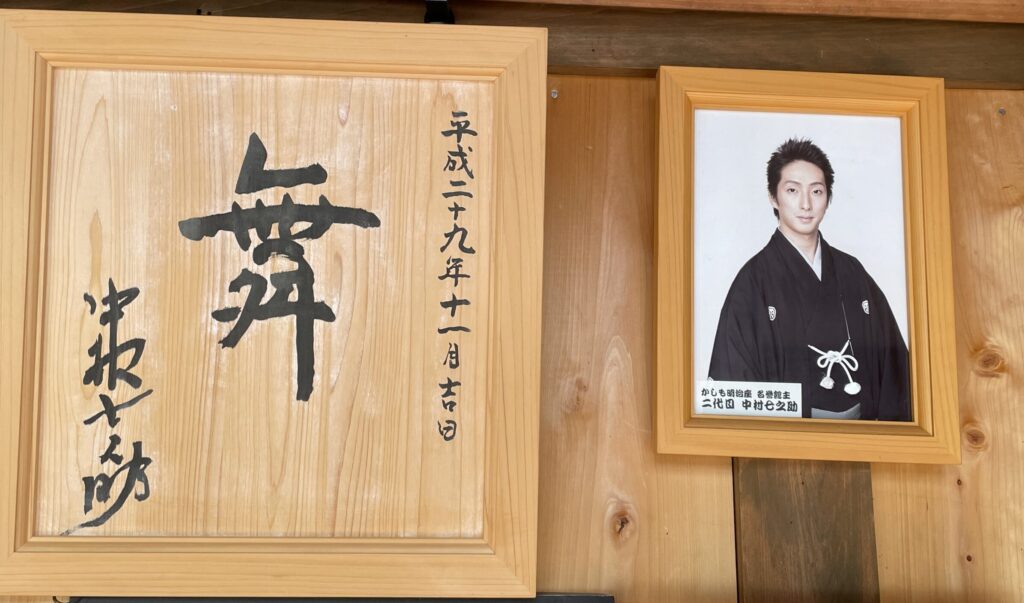 平成二十九年十一月吉日
舞
中村七之助
かしも明治座 名誉館主
二代目 中村七之助